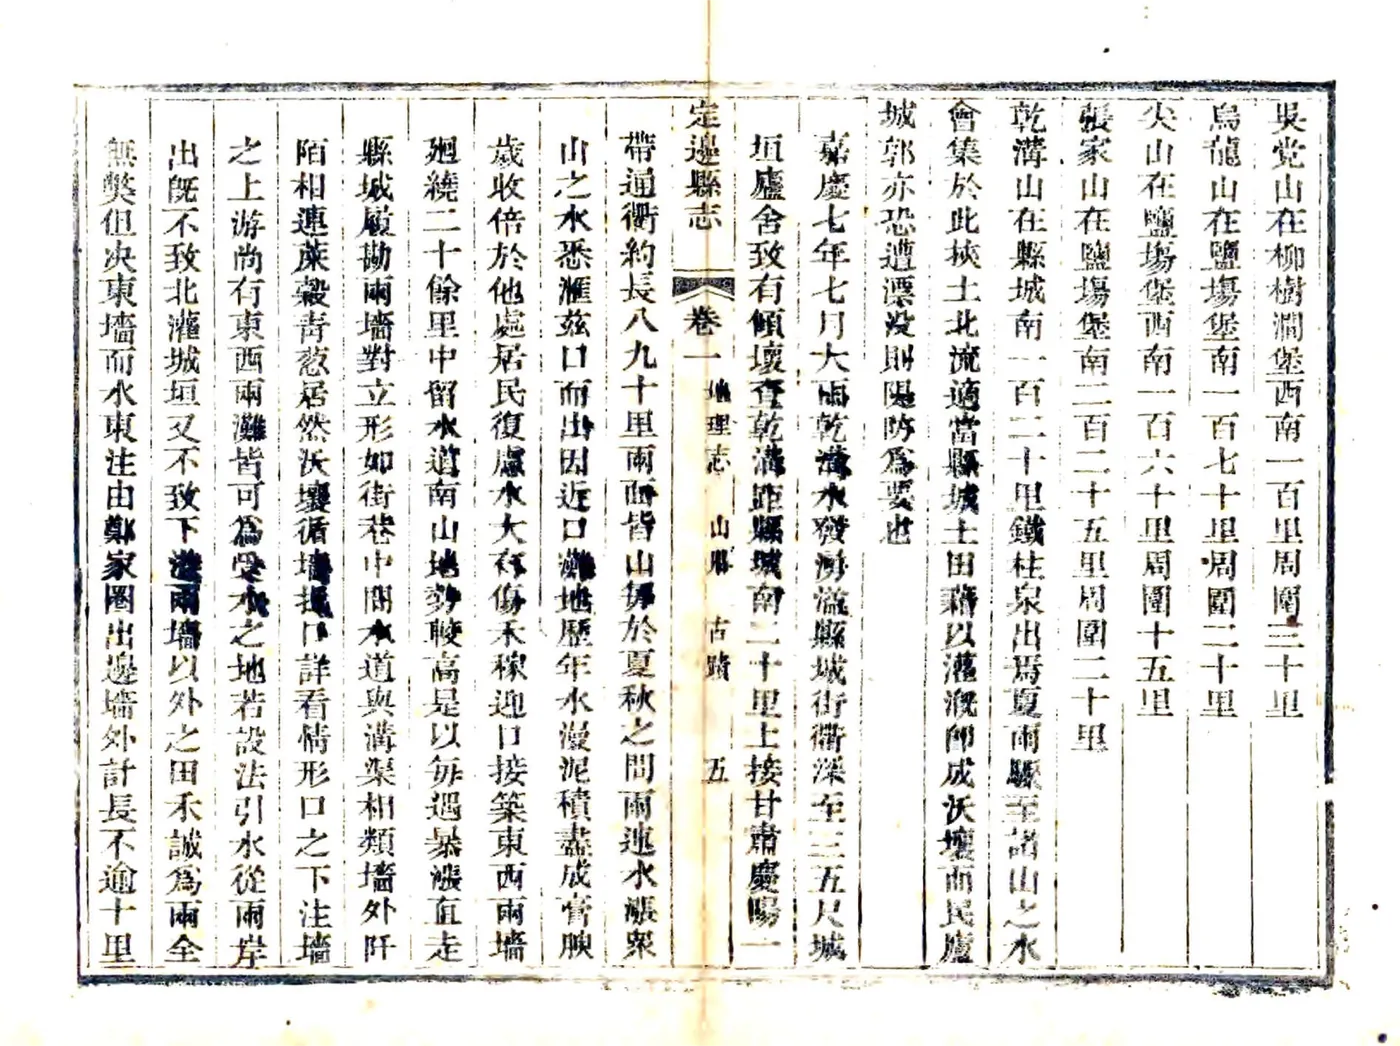 吳党山在柳樹澗堡西南一百里周圍三十里
烏龍山在鹽塲堡南一百七十里周圍二十里
尖山在鹽塲堡西南一百六十里周圍十五里
張家山在鹽塲堡南二百二十五里周圍二十里
乾溝山在縣城南一百二十里鐵柱泉出焉夏雨驟至諸山之水
會集於此挾土北流適當縣城土田藉以灌漑卽成沃壤而民廬
城郭亦恐遭漂没則隄防爲要也
嘉慶七年七月大雨乾溝水發湧溢縣城街衢深至三五尺城
垣廬舍致有傾壞查乾溝距縣城南二十里上接甘肅慶陽一
定邊縣志
卷一
地理志
山川
古蹟
五
帶通衢約長八九十里兩面皆山每於夏秋之間雨連水漲衆
山之水悉滙兹口而出因近口灘地歷年水漫泥積盡成膏腴
歲收倍於他處居民復慮水大有傷禾稼迎口接築東西兩墻
廻繞二十餘里中留水道南山地勢較高是以每遇暴漲直走
縣城履勘兩墻對立形如街巷中間水道與溝渠相類墻外阡
陌相連蔴穀靑葱居然沃壤循墻口詳看情形口之下注墻
之上游尚有東西兩灘皆可爲受水之地若設法引水從兩岸
出旣不致北灌城垣又不致下淹兩墻以外之田禾誠爲兩全
無獘但决東墻而水東注由鄭家圈出邊墻外計長不逾十里